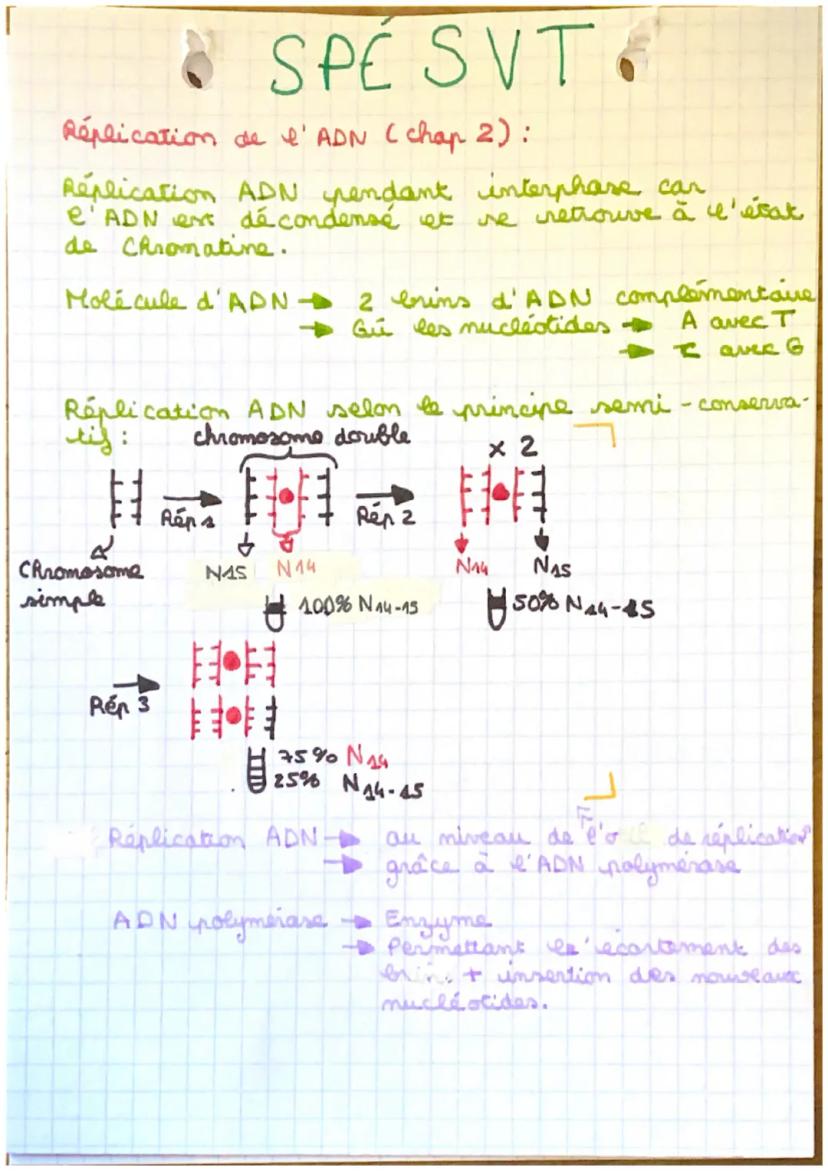 SPÉ SVT
Réplication de l'ADN (chap 2) :
Réplication ADN pendant interphase car
l'ADN est décondensé et se retrouve à l'état
de Chromatine.
Molécule d'ADN → 2 brins d'ADN complémentaire
→ les nucléotides → A avec T
→ C avec G
Réplication ADN selon le principe semi-conserva-
tif :
chromosome double
x 2
Rép 1
Rép 2
Chromosome
simple
N15 N14
N14 N15
100% N14-15
50% N14-15
Rép 3
75% N14
25% N14-15
Réplication ADN → au niveau de l' de réplication
→ grâce à l'ADN polymérase
ADN polymérase → Enzyme
→ Permettant l'écartement des
+ insertion des nouveaux
nucléotides.